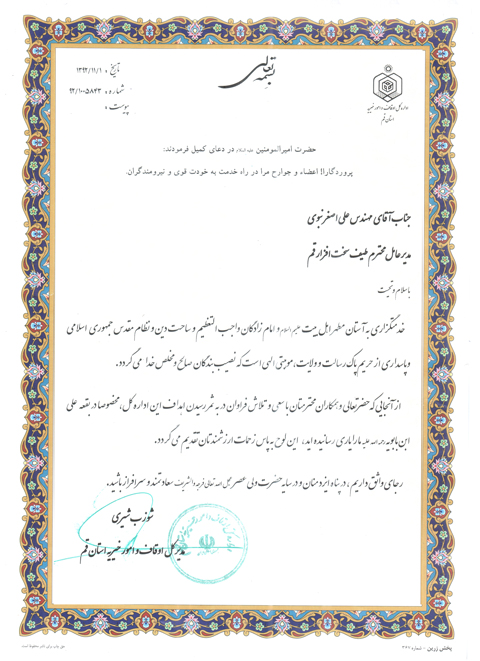 بسمه تعالی
تاریخ : ۱۳۹۲/۱۱/۱
شماره : ۹۲/۱۰۰۵۸۴۳
پیوست :
اداره کل اوقاف و امور خیریه
استان قم
حضرت امیرالمومنین علیه السلام در دعای کمیل فرمودند:
پروردگارا! اعضاء و جوارح مرا در راه خدمت به خودت قوی و نیرومندگردان.
جناب آقای مهندس علی اصغر نبوی
مدیرعامل محترم طیف سخت افزار قم
باسلام و تحیت
خدمتگزاری به آستان مطهر اهل بیت علیهم السلام و امام زادگان واجب التعظیم و ساحت دین و نظام مقدس جمهوری اسلامی
و پاسداری از حریم پاک رسالت و ولایت، موهبتی الهی است که نصیب بندگان صالح و مخلص خدا می گردد.
از آنجایی که حضرتعالی و همکاران محترمتان با سعی و تلاش فراوان در به ثمر رسیدن اهداف این اداره کل، مخصوصا در بقعه علی
ابن بابویه رحمه الله علیه ما را یاری رسانیده اید، این لوح به پاس زحمات ارزشمندتان تقدیم می گردد.
رجای واثق داریم در پناه ایزد منان و در سایه حضرت ولی عصر عجل الله تعالی فرجه الشریف سعادتمند و سرافراز باشید.
شوزب شیری
مدیرکل اوقاف و امور خیریه استان قم
پخش زرین - شماره ۳۴۸